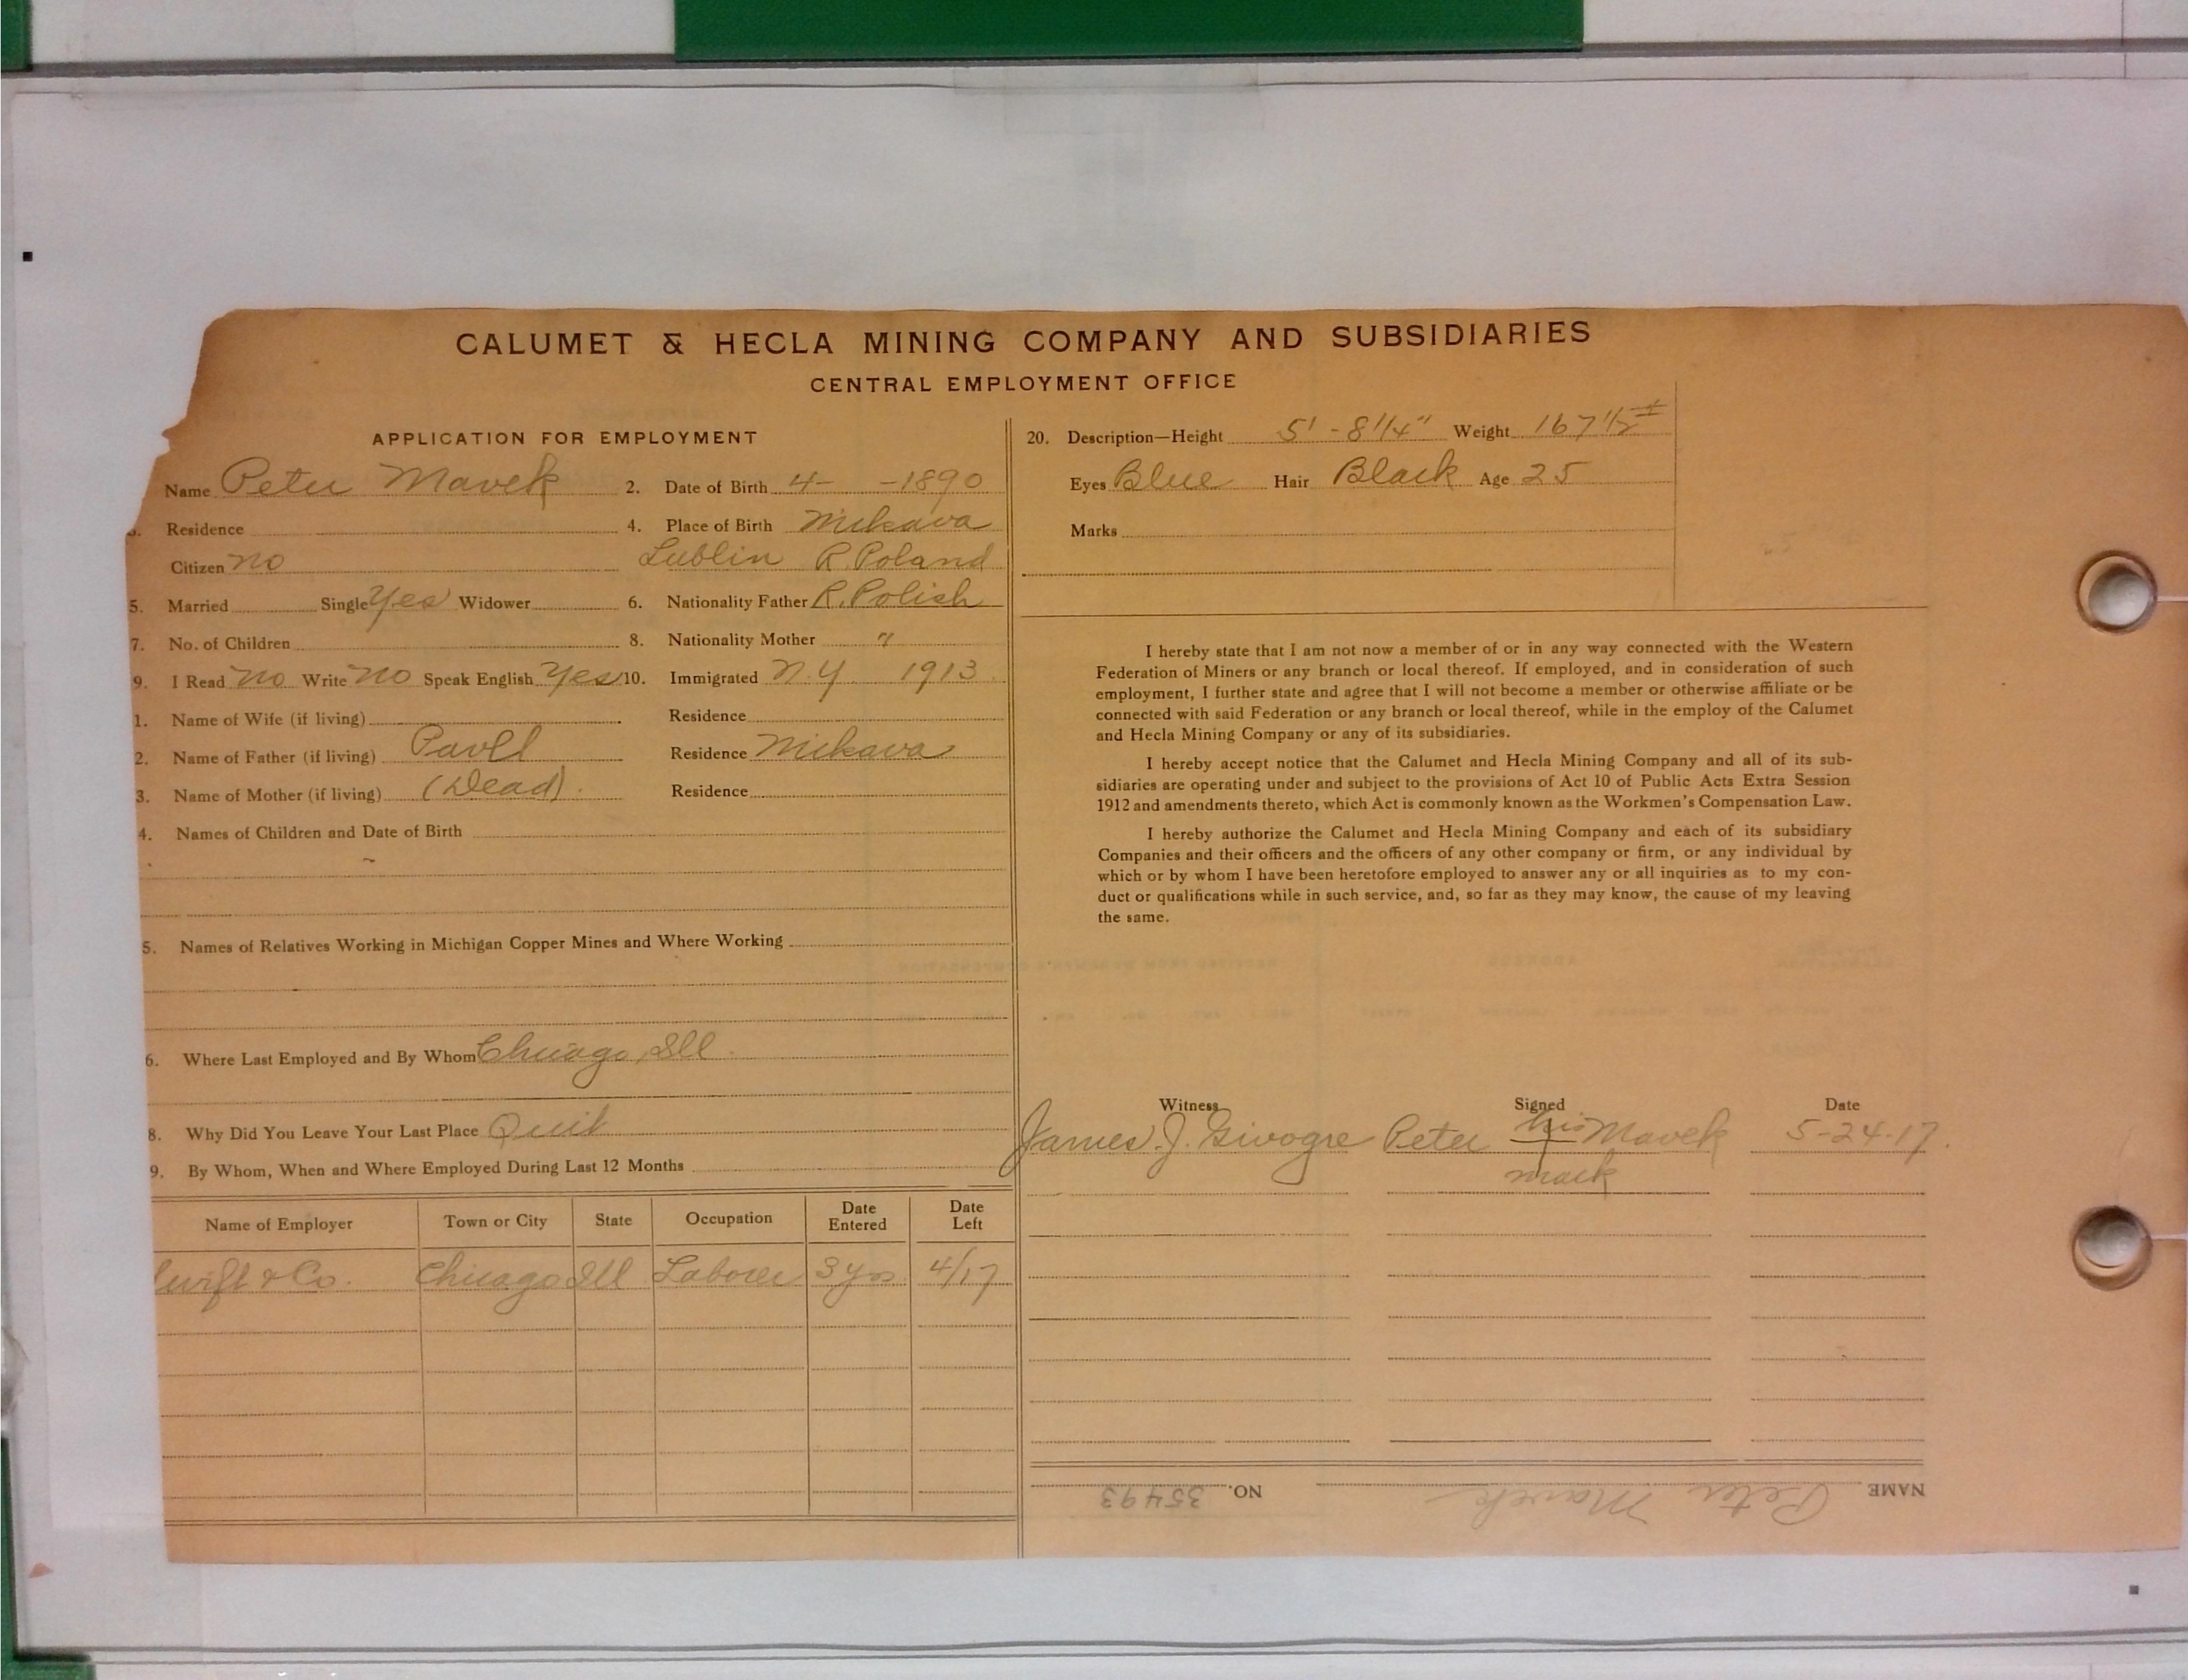 CALUMET & HECLA MINING COMPANY AND SUBSIDIARIES
CENTRAL EMPLOYMENT OFFICE
APPLICATION FOR EMPLOYMENT
Name Peter Mavek 2. Date of Birth 4- -1890
3. Residence 4. Place of Birth Mikava
Citizen no Lublin R. Poland
5. Married Single Yes Widower 6. Nationality Father R. Polish
7. No. of Children 8. Nationality Mother "
9. I Read no Write no Speak English Yes 10. Immigrated N.Y 1913
1. Name of Wife (if living) Residence
2. Name of Father (if living) Pavel Residence Mikava
3. Name of Mother (if living) (Dead). Residence
4. Names of Children and Date of Birth
5. Names of Relatives Working in Michigan Copper Mines and Where Working
6. Where Last Employed and By Whom Chicago, Ill.
8. Why Did You Leave Your Last Place Quit
9. By Whom, When and Where Employed During Last 12 Months
Name of Employer Town or City State Occupation Date Entered Date Left
Swift & Co. Chicago Ill Laborer 3 yrs 4/17
20. Description—Height 5' - 8 1/4" Weight 167 1/2 #
Eyes Blue Hair Black Age 25
Marks
I hereby state that I am not now a member of or in any way connected with the Western
Federation of Miners or any branch or local thereof. If employed, and in consideration of such
employment, I further state and agree that I will not become a member or otherwise affiliate or be
connected with said Federation or any branch or local thereof, while in the employ of the Calumet
and Hecla Mining Company or any of its subsidiaries.
I hereby accept notice that the Calumet and Hecla Mining Company and all of its sub-
sidiaries are operating under and subject to the provisions of Act 10 of Public Acts Extra Session
1912 and amendments thereto, which Act is commonly known as the Workmen's Compensation Law.
I hereby authorize the Calumet and Hecla Mining Company and each of its subsidiary
Companies and their officers and the officers of any other company or firm, or any individual by
which or by whom I have been heretofore employed to answer any or all inquiries as to my con-
duct or qualifications while in such service, and, so far as they may know, the cause of my leaving
the same.
Witness Signed Date
James. J. Givogre Peter his Mavek 5-24-17.
mark
NAME Peter Mavek NO. 35493